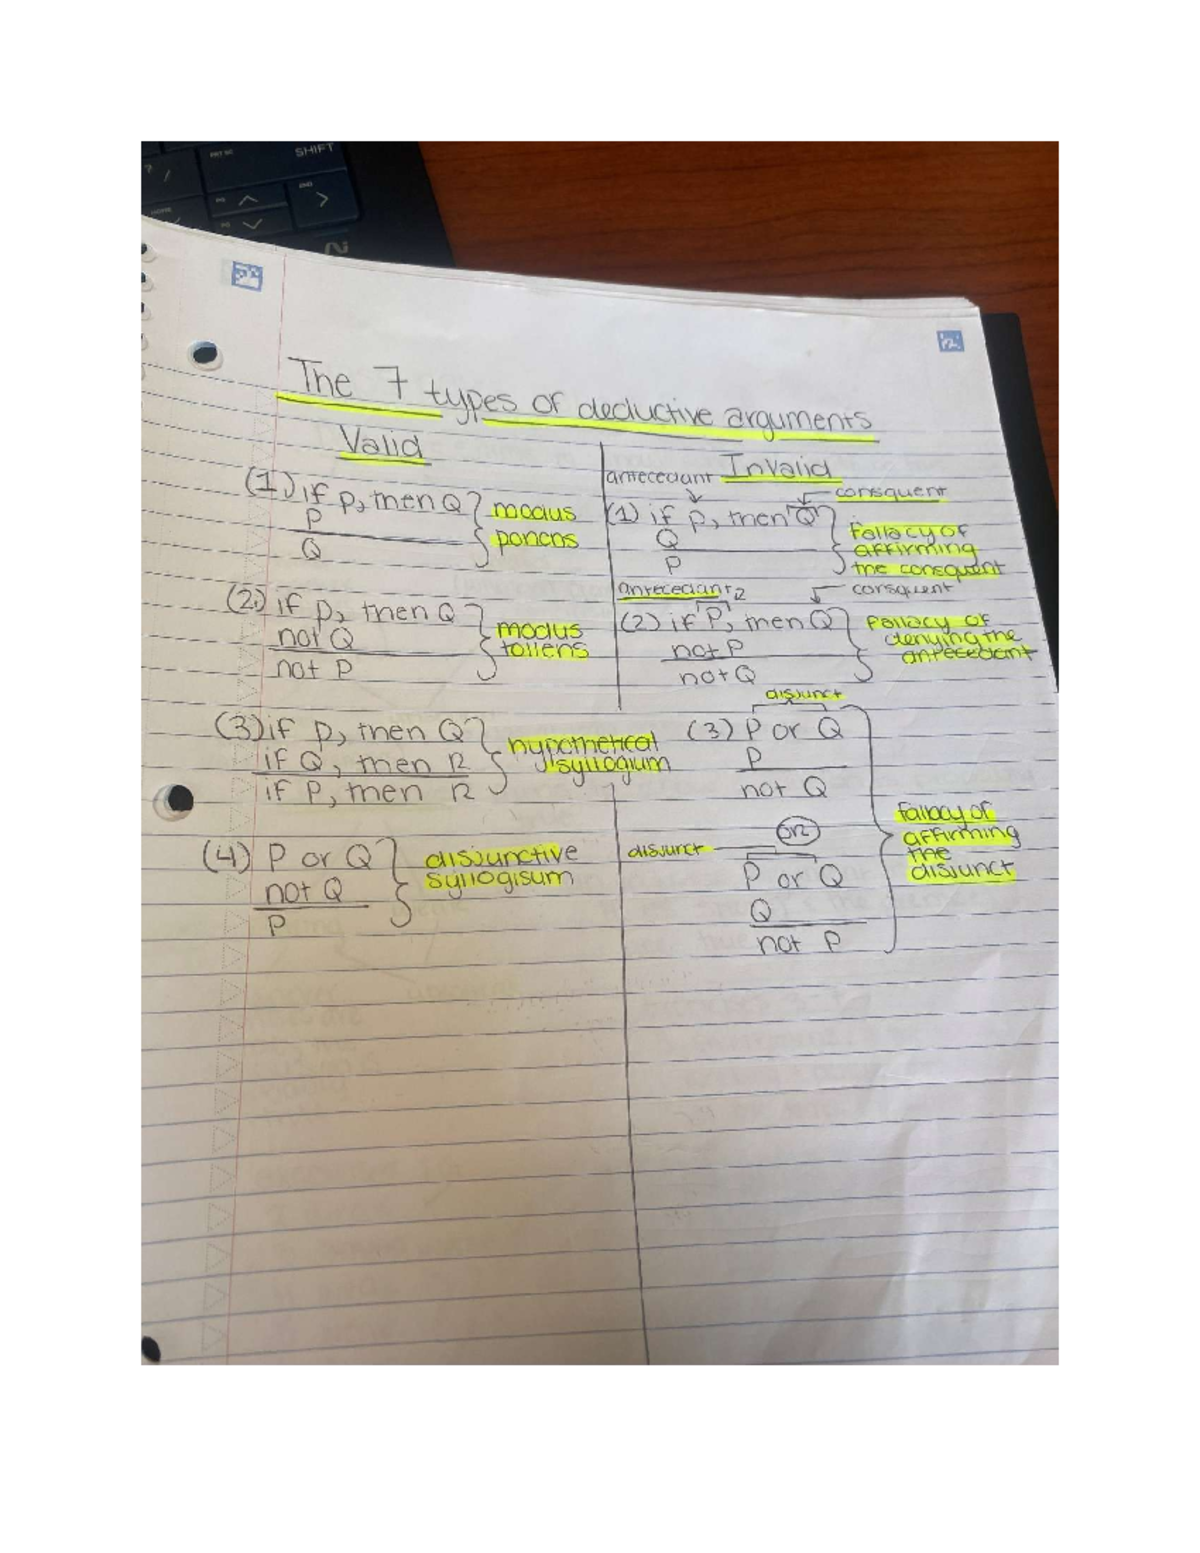 PRT SC
SHIFT
END
The 7 types of deductive arguments
Valid
(1) if P, then Q
P
Q
modus
poncns
(2) if P, then Q
not Q
not P
modus
tollens
(3) if P, then Q
if Q, then R
if P, then R
hypothetical
syllogium
(4) P or Q
not Q
P
disjunctive
syllogisum
Invalid
antecedant
consquent
(1) if P, then "Q"
Q
P
Fallacy of
affirming
the consquent
antecedant
consquent
(2) if "P", then Q
not P
not Q
Fallacy of
denying the
antecedant
disjunct
(3) P or Q
P
not Q
OR
disjunct
P or Q
Q
not P
fallacy of
affirming
the
disjunct